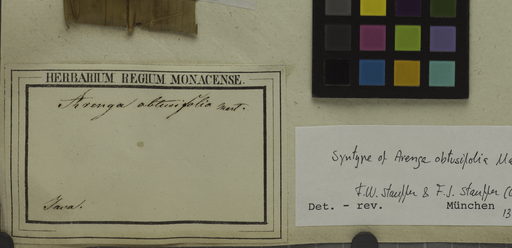 HERBARIUM REGIUM MONACENSE.
Arenga obtusifolia Mart.
Java.
Syntype of Arenga obtusifolia Ma
F.W. Stauffer & F.J. Stauffer (
Det. - rev. München
13